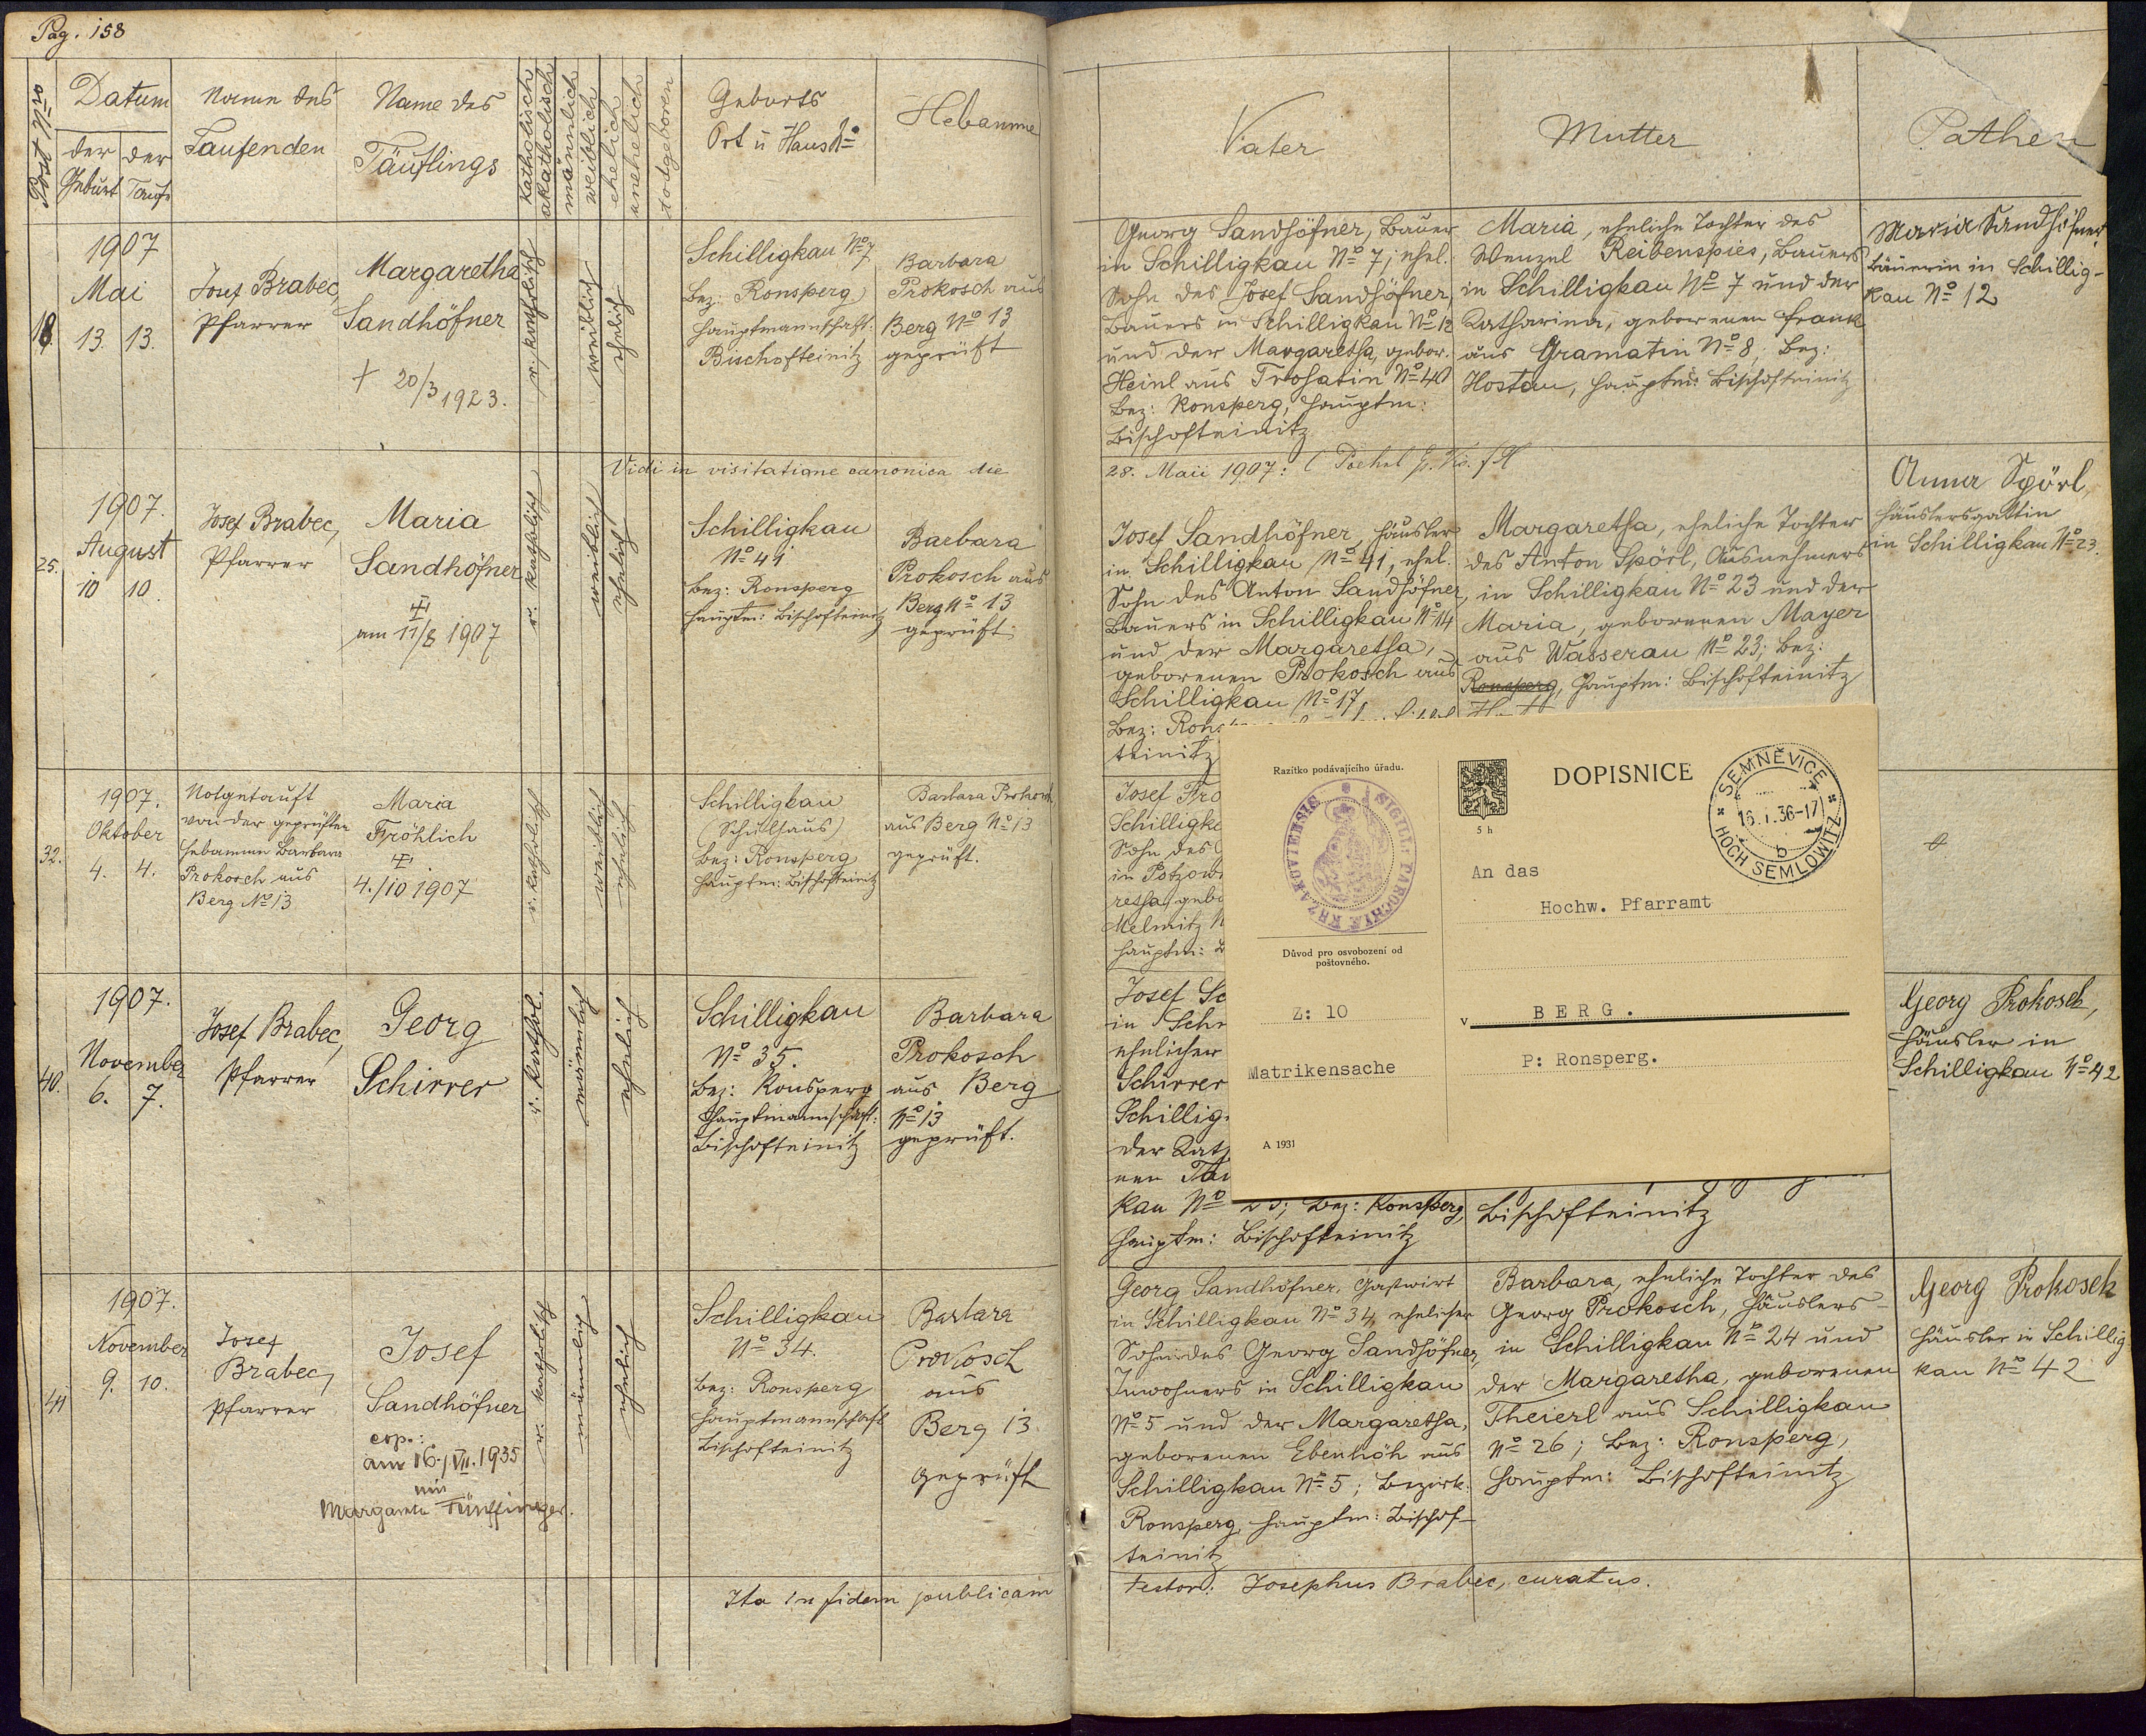 Pag. 158
Post Nro
Datum
der Geburt
der Taufe
Name des
Taufenden
Name des
Täuflings
katholisch
akatholisch
männlich
weiblich
ehelich
unehelich
todgeboren
Geburts
Ort u Haus No
Hebamme
Vater
Mutter
Pathen
18
1907
Mai
13. 13.
Josef Brabec,
Pfarrer
Margaretha
Sandhöfner
† 20/3 1923.
r. katholisch
weiblich
ehelich
Schilligkau No 7
Bez: Ronsperg
Hauptmannschaft:
Bischofteinitz
Barbara
Prokosch aus
Berg No 13
geprüft
Georg Sandhöfner, Bauer
in Schilligkau No 7; ehel.
Sohn des Josef Sandhöfner,
Bauers in Schilligkau No 12
und der Margaretha, gebor.
Heinl aus Trohatin No 40
Bez: Ronsperg, Hauptm:
Bischofteinitz
Maria, eheliche Tochter des
Wenzel Reibenspies, Bauers
in Schilligkau No 7 und der
Katharina, geborenen Frank
aus Gramatin No 8; Bez:
Hostau, Hauptm: Bischofteinitz
Maria Sandhöfner,
Bäuerin in Schillig-
kau No 12
Vidi in visitatione canonica die
28. Maii 1907:
25.
1907.
August
10 10.
Josef Brabec,
Pfarrer
Maria
Sandhöfner
am 11/8 1907
r. katholisch
weiblich
ehelich
Schilligkau
No 41
Bez: Ronsperg
Hauptm: Bischofteinitz
Barbara
Prokosch aus
Berg No 13
geprüft
Josef Sandhöfner, Häusler
in Schilligkau No 41, ehel.
Sohn des Anton Sandhöfner,
Bauers in Schilligkau No 14
und der Margaretha,
geborenen Prokosch aus
Schilligkau No 17,
Bez: Rons
teinitz
Margaretha, eheliche Tochter
des Anton Spörl, Ausnehmers
in Schilligkau No 23 und der
Maria, geborenen Mayer
aus Wasserau No 23; Bez:
Ronsperg, Hauptm: Bischofteinitz
Anna Spörl,
Häuslersgattin
in Schilligkau No 23.
32.
1907.
Oktober
4. 4.
Notgetauft
von der geprüften
Hebamme Barbara
Prokosch aus
Berg No 13
Maria
Fröhlich
4./10 1907
r. katholisch
weiblich
ehelich
Schilligkau
(Schulhaus)
Bez: Ronsperg
Hauptm: Bischofteinitz
Barbara Prokosch
aus Berg No 13
geprüft.
Josef Frö
Schilligk
Sohn des
in Potzow
retha, gebo
Melmitz N
Hauptm: B
Razítko podávajícího úřadu.
SIGILL: PAROCHIÆ KRZAKOVIENSIS
Důvod pro osvobození od
poštovného.
Z: 10
Matrikensache
A 1931
5 h
DOPISNICE
SEMNĚVICE
16.I.36-17
b
HOCH SEMLOWITZ
An das
Hochw. Pfarramt
v BERG.
P: Ronsperg.
40.
1907.
November
6. 7.
Josef Brabec,
Pfarrer
Georg
Schirrer
r. kathol.
männlich
ehelich
Schilligkau
No 35.
Bez: Ronsperg
Hauptmannschaft:
Bischofteinitz
Barbara
Prokosch
aus Berg
No 13
geprüft.
Josef Sc
in Sch
ehelicher
Schirrer
Schillig
der Kath
nen
kau No 23; Bez: Ronsperg,
Hauptm: Bischofteinitz
Bischofteinitz
Georg Prokosch,
Häusler in
Schilligkau No 42
41
1907.
November
9. 10.
Josef
Brabec,
Pfarrer
Josef
Sandhöfner
cop.:
am 16./VII.1935
mit
Margareta Fünffinger.
r. katholisch
männlich
ehelich
Schilligkau
No 34.
Bez: Ronsperg
Hauptmannschaft
Bischofteinitz
Barbara
Prokosch
aus
Berg 13.
geprüft
Georg Sandhöfner, Gastwirt
in Schilligkau No 34, ehelicher
Sohn des Georg Sandhöfner,
Inwohners in Schilligkau
No 5 und der Margaretha,
geborenen Ebenhöh aus
Schilligkau No 5; Bezirk:
Ronsperg, Hauptm: Bischof-
teinitz
Barbara, eheliche Tochter des
Georg Prokosch, Häuslers
in Schilligkau No 24 und
der Margaretha, geborenen
Theierl aus Schilligkau
No 26; Bez: Ronsperg,
Hauptm: Bischofteinitz
Georg Prokosch
Häusler in Schillig-
kau No 42
Ita in fidem publicam
testor: Josephus Brabec, curatus.